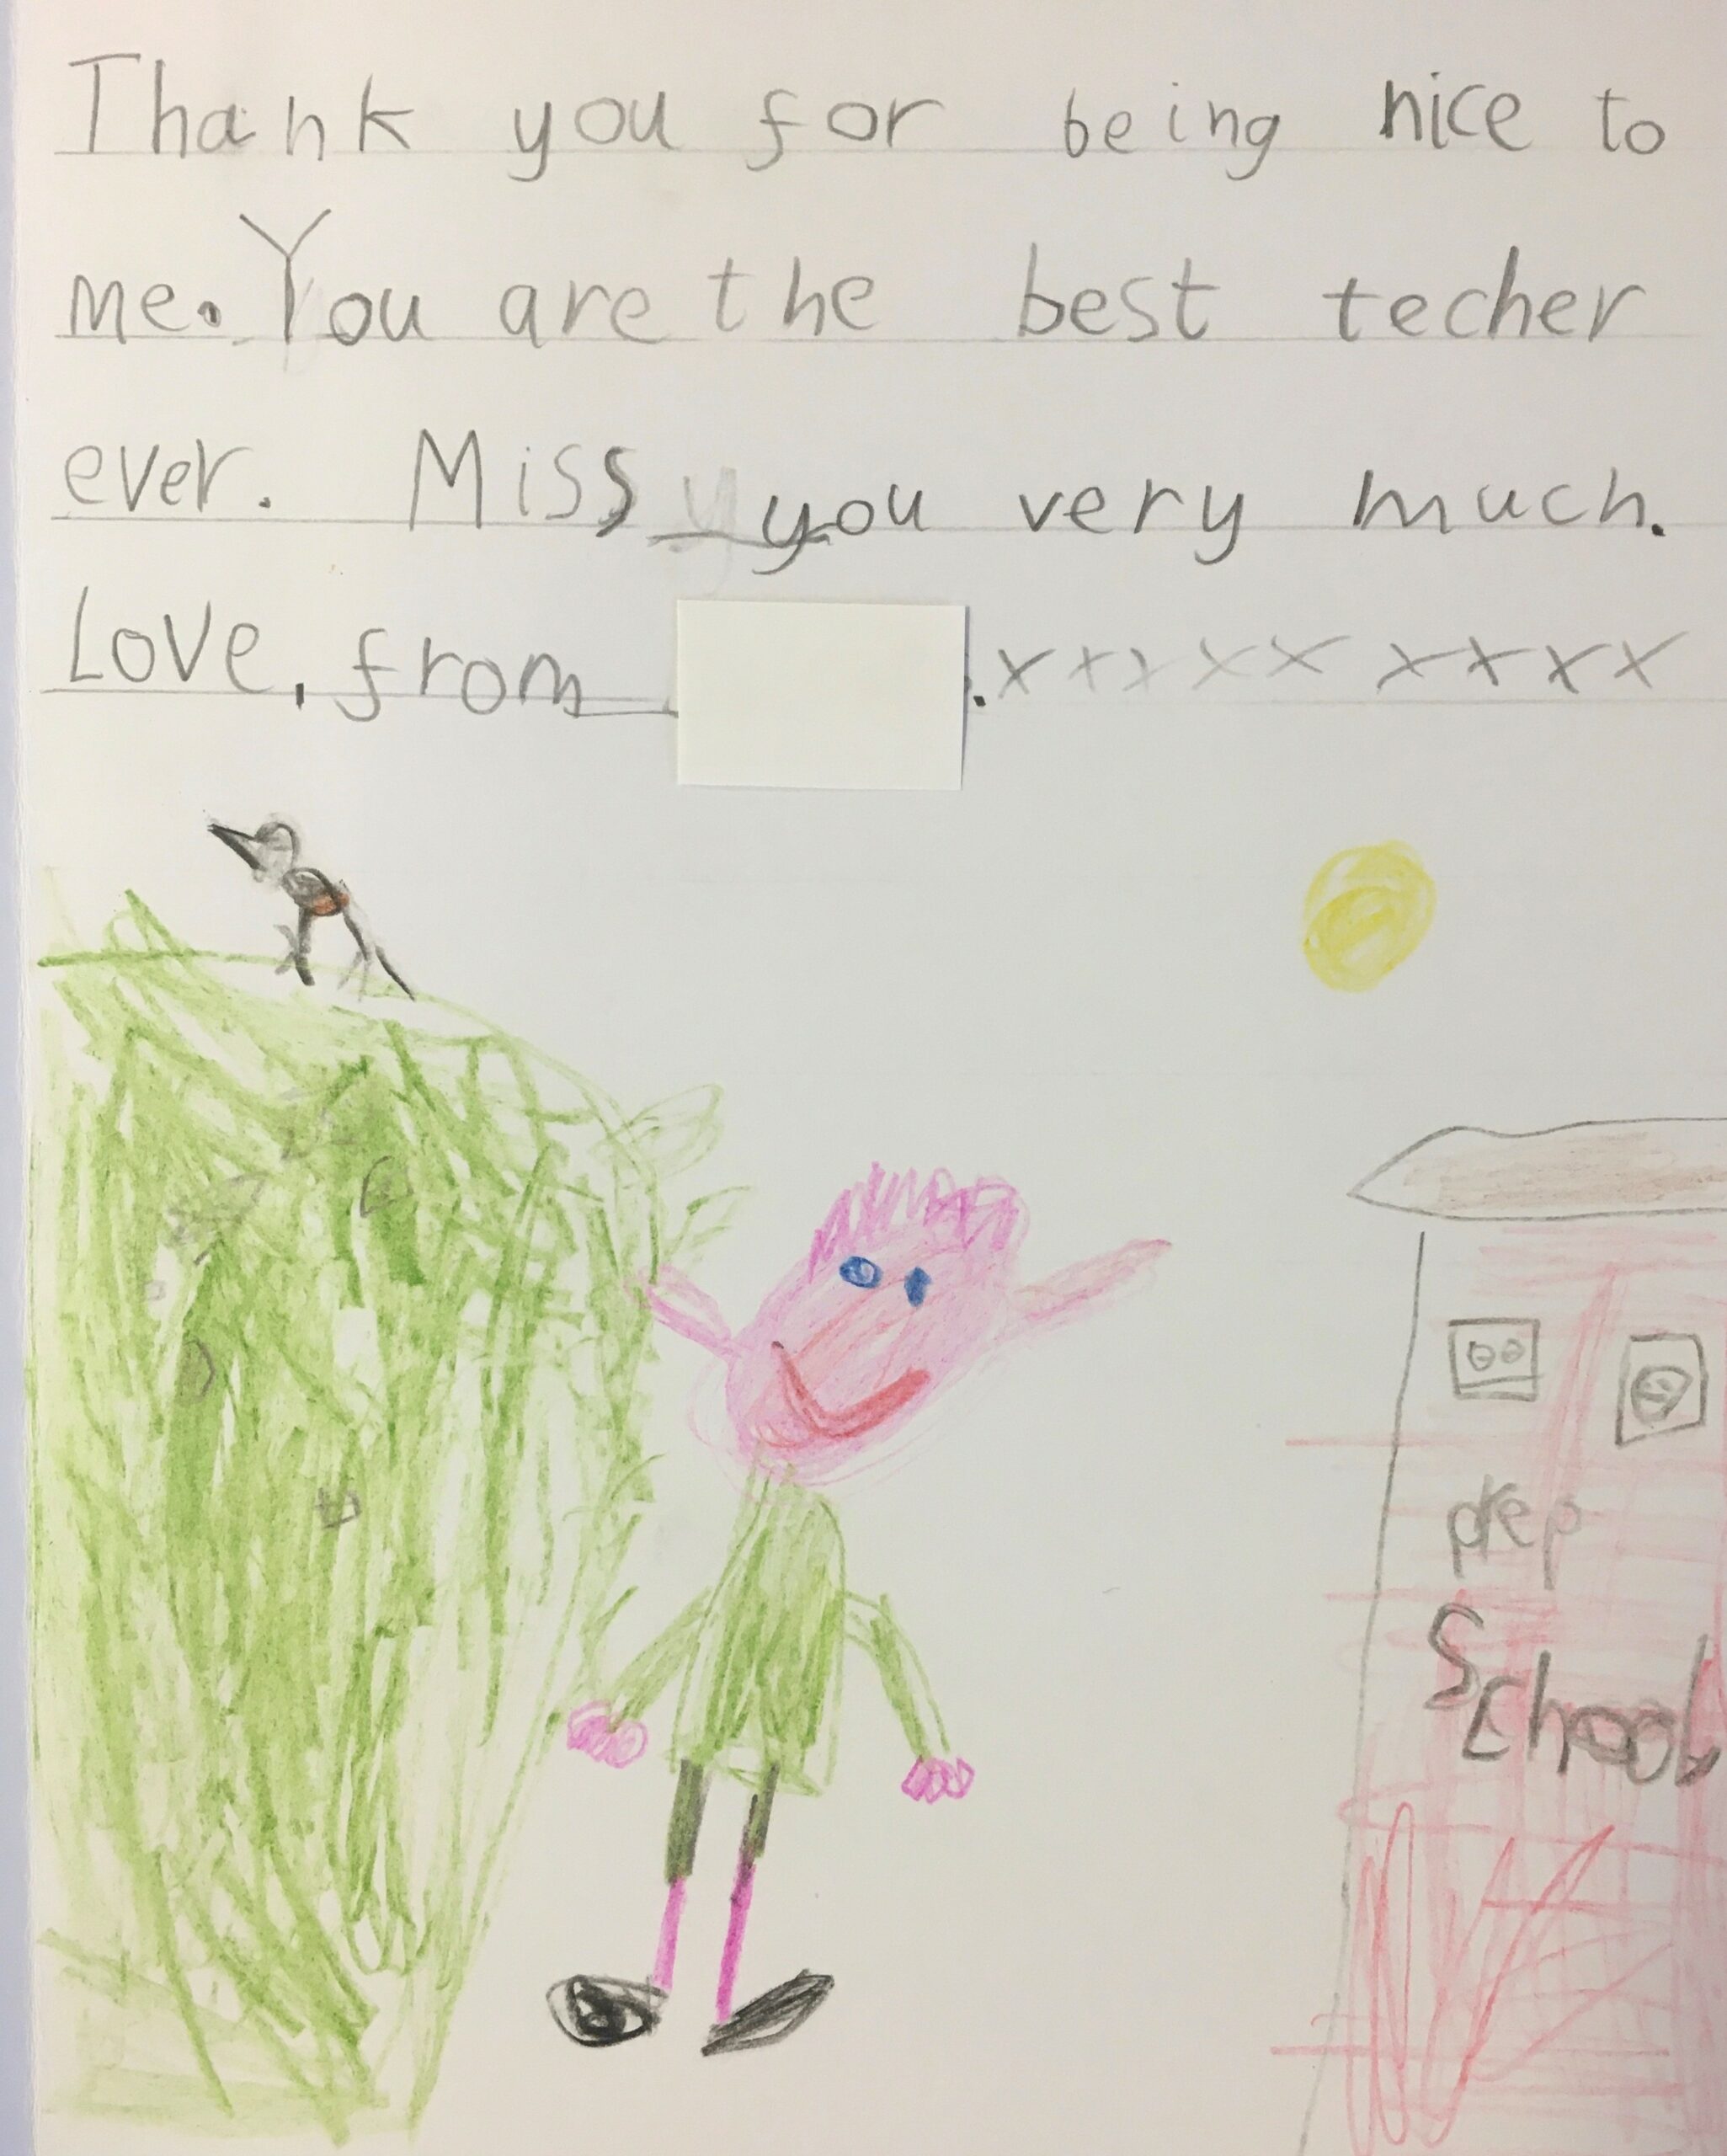 Thank you for being nice to
me. You are the best techer
ever. Miss you very much.
Love, from .xxxxx xxxx
prep
School